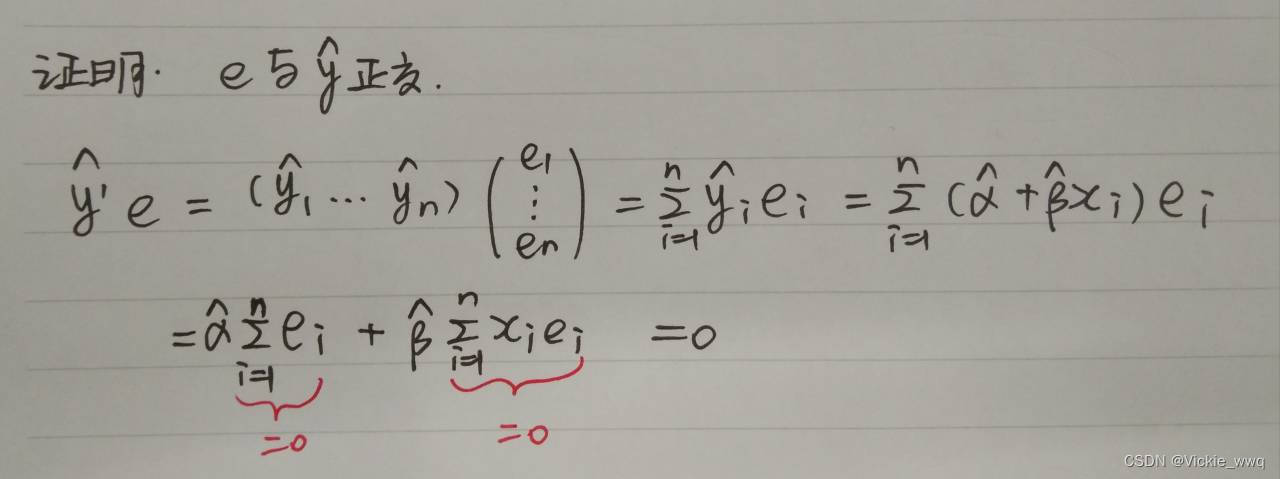 证明. e与ŷ正交.
ŷ'e = (ŷ₁ … ŷₙ) (e₁ ⋮ eₙ) = Σᵢ₌₁ⁿ ŷᵢeᵢ = Σᵢ₌₁ⁿ (α̂ + β̂xᵢ) eᵢ
= α̂ Σᵢ₌₁ⁿ eᵢ + β̂ Σᵢ₌₁ⁿ xᵢeᵢ = 0
=0 =0
CSDN @Vickie_wwq